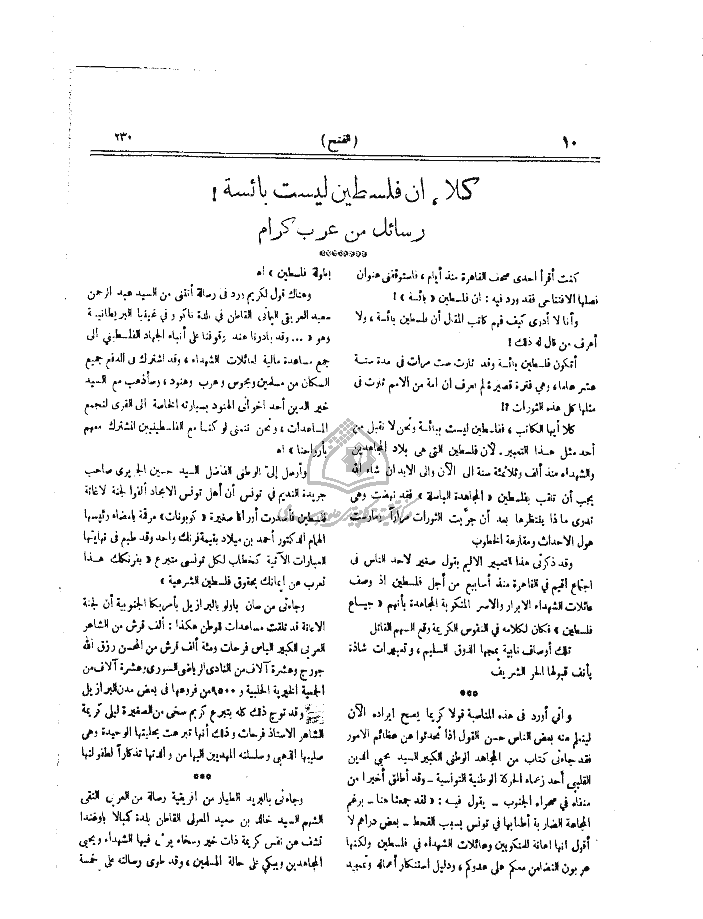 ١٠
( الفتح )
٢٣٠
كلا ، ان فلسطين ليست بائسة !
رسائل من عرب كرام
كنت أقرأ احدى صحف القاهرة منذ أيام ، فاستوقفنى عنوان
فصلها الافتتاحى فقد ورد فيه : ان فلسطين « بائسة » !
وأنا لا أدرى كيف فهم كاتب المقال أن فلسطين بائسة ، ولا
أعرف من قال له ذلك !
أتكون فلسطين بائسة وقد ثارت ست مرات فى مدة ستة
عشر عاما ، وهي فترة قصيرة لم نعرف ان امة من الامم ثارت فى
مثلها كل هذه الثورات ؟!
كلا أيها الكاتب ، ففلسطين ليست ببائسة ونحن لا نقبل من
أحد مثل هذا التعبير . لأن فلسطين التى هى بلاد المجاهدين
والشهداء منذ ألف وثلاثمئة سنة الى الآن والى الابد ان شاء الله
يجب أن تلقب بفلسطين « المجاهدة الباسلة » فقد نهضت وهى
تدرى ماذا ينتظرها بعد أن جربت الثورات مراراً ومارست
هول الاحداث ومقارعة الخطوب
وقد ذكرنى هذا التعبير الاليم بقول صغير لاحد الناس فى
اجتماع أقيم فى القاهرة منذ أسابيع من أجل فلسطين اذ وصف
عائلات الشهداء الابرار والاسر المنكوبة المجاهدة بأنهم « جياع
فلسطين » فكان لكلامه فى النفوس الكريمة وقع السهم القاتل
تلك أوصاف نابية يمجها الذوق السليم ، وتعبيرات شاذة
يأنف قبولها الحر الشريف
***
و انى أورد فى هذه المناسبة قولا كريما يصح ايراده الآن
ليتعلم منه بعض الناس حسن القول اذا تحدثوا عن عظائم الامور
فقد جاءنى كتاب من المجاهد الوطنى الكبير السيد محيي الدين
القليبى أحد زعماء الحركة الوطنية التونسية ــ وقد أطلق أخيرا من
منفاه فى صحراء الجنوب ــ يقول فيه : « لقد جمعنا هنا ــ برغم
المجاعة الضاربة أطنابها فى تونس بسبب القحط ــ بعض دراهم لا
أقول انها اعانة للمنكوبين وعائلات الشهداء فى فلسطين ولكنها
عربون التضامن معكم على عدوكم ، ودليل استنكار أعماله وتمجيد
بطولة فلسطين » اه
وهناك قول لكريم ورد فى رسالة أتتنى من السيد عبد الرحمن
سعيد العريقى اليمانى القاطن فى بلدة ناكورو فى البريطانية
وهو « ... وقد بادرنا عند وقوفنا على أنباء الجهاد الفلسطينى الى
جمع مساعدة مالية لعائلات الشهداء ، وقد اشترك فى الدفع جميع
السكان من مسلمين ومجوس وعرب وهنود ، وسأذهب مع السيد
خير الدين أحد اخوانى الهنود بسيارته الخاصة الى القرى لنجمع
المساعدات ، ونحن نتمنى لو كنا مع الفلسطينيين لنشترك معهم
بأرواحنا » اه
وأرسل إلى الوطنى الفاضل السيد حسين الجزيرى صاحب
جريدة النديم فى تونس أن أهل تونس الامجاد ألفوا لجنة لاغاثة
فلسطين فأصدرت أوراقا صغيرة « كوبونات » مرقمة بامضاء رئيسها
الهمام الدكتور أحمد بن ميلاد بقيمة فرنك واحد وقد طبع فى نهايتها
العبارات الآتية كخطاب لكل تونسى متبرع « بفرنكك هذا
تعرب عن ايمانك بحقوق فلسطين الشرعية »
وجاءنى من سان باولو بالبرازيل بأمريكا الجنوبية أن لجنة
الاعانة قد تلقت مساعدات للوطن هكذا : ألف قرش من الشاعر
العربى الكبير الياس فرحات ومئة ألف قرش من المحسن رزق الله
جورج وعشرة آلاف من النادى الرياضى السورى وعشرة آلاف من
الجمعية الخيرية الحلبية و ٩٥٠٠ من فروعها فى بعض مدن البرازيل
وقد توج ذلك كله بتبرع كريم سخى من الصغيرة ليلى كريمة
الشاعر الاستاذ فرحات ، و ذلك أنها تبرعت بحليتها الوحيدة وهى
صليبها الذهبى وسلسلته المهديين اليها من والدتها تذكاراً لطفولتها
***
وجاءنى بالبريد الطيار من افريقية رسالة من العربى التقى
الشهم السيد خالد بن سعيد القاطن بلدة كمبالا باوغندا
تشف عن نفس كريمة ذات خير وسخاء يرثى فيها الشهداء ويحيى
المجاهدين ويبكي على حالة المسلمين ، وقد طوى رسالته على خمسة